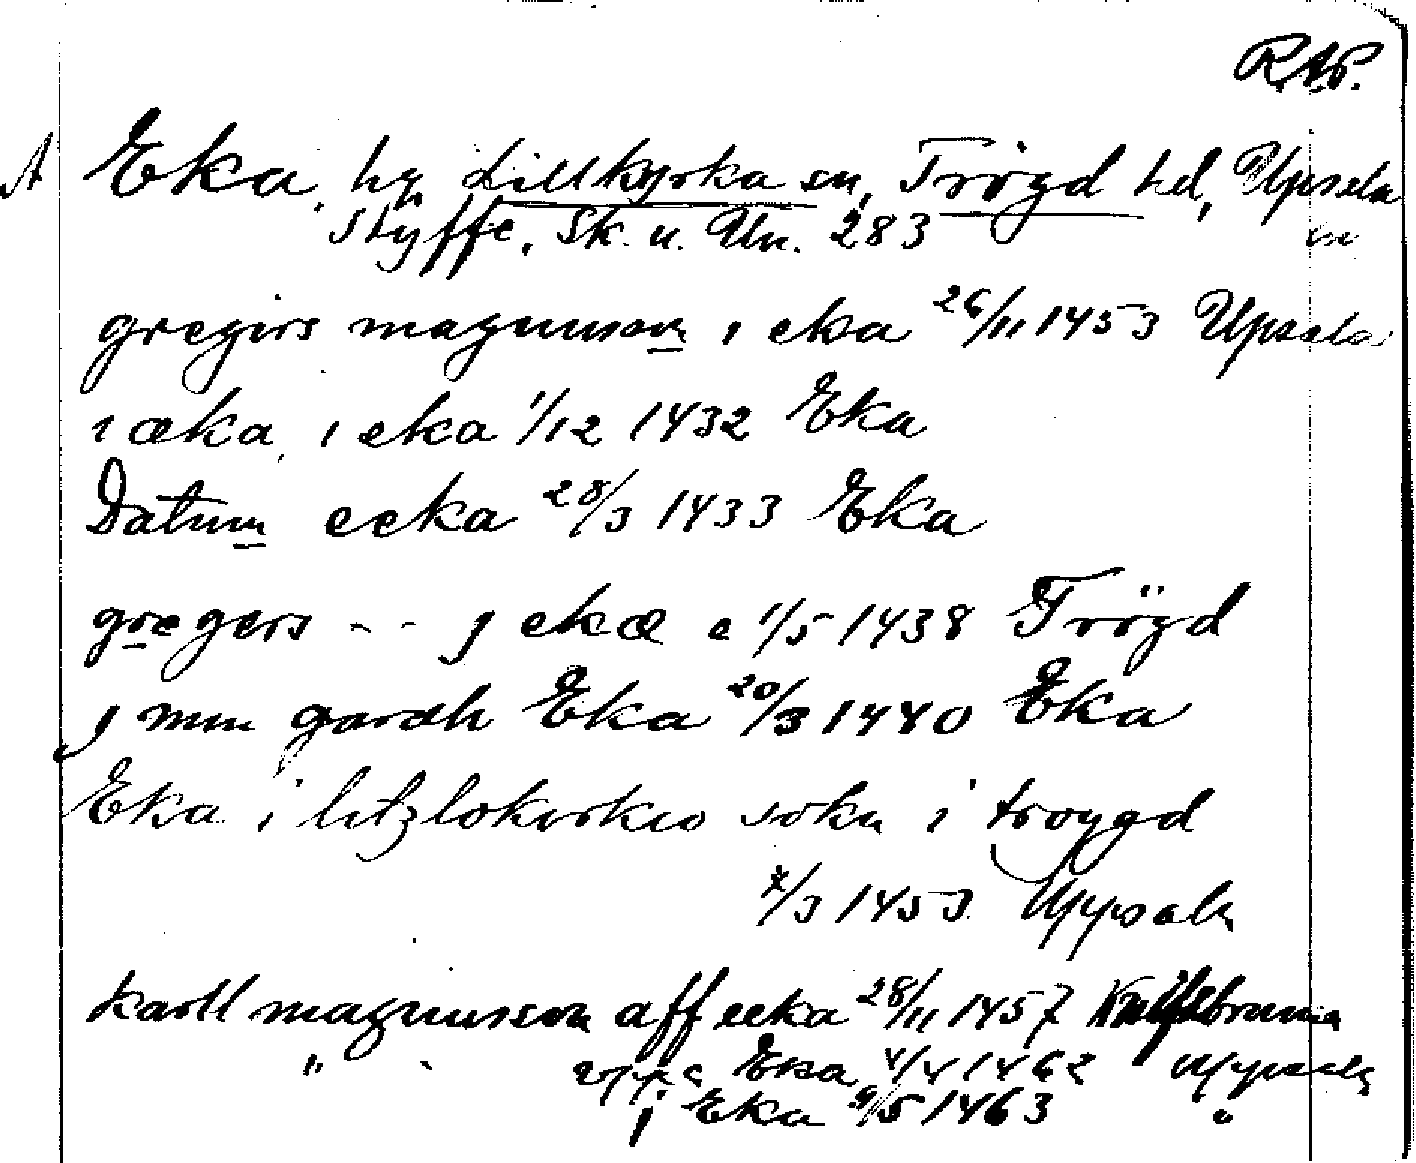 RAP.
A Eka, hg. Lillkyrka sn, Trögd hd, Upsala
Styffe, Sk. u. Un. 283 län
gregirs magnusson i eka 26/11 1453 Upsala
i æka, i eka 1/12 1432 Eka
Datum ecka 28/3 1433 Eka
gregers - - j ekæ e 1/5 1438 Trögd
j min gardh Eka 20/3 1440 Eka
Eka i litzlokirkio sokn i troygd
/3 1453 Uppsala
karll magnusson aff eeka 28/11 1457
" " Eka 4/4 1462 Uppsala
j Eka 9/5 1463 "